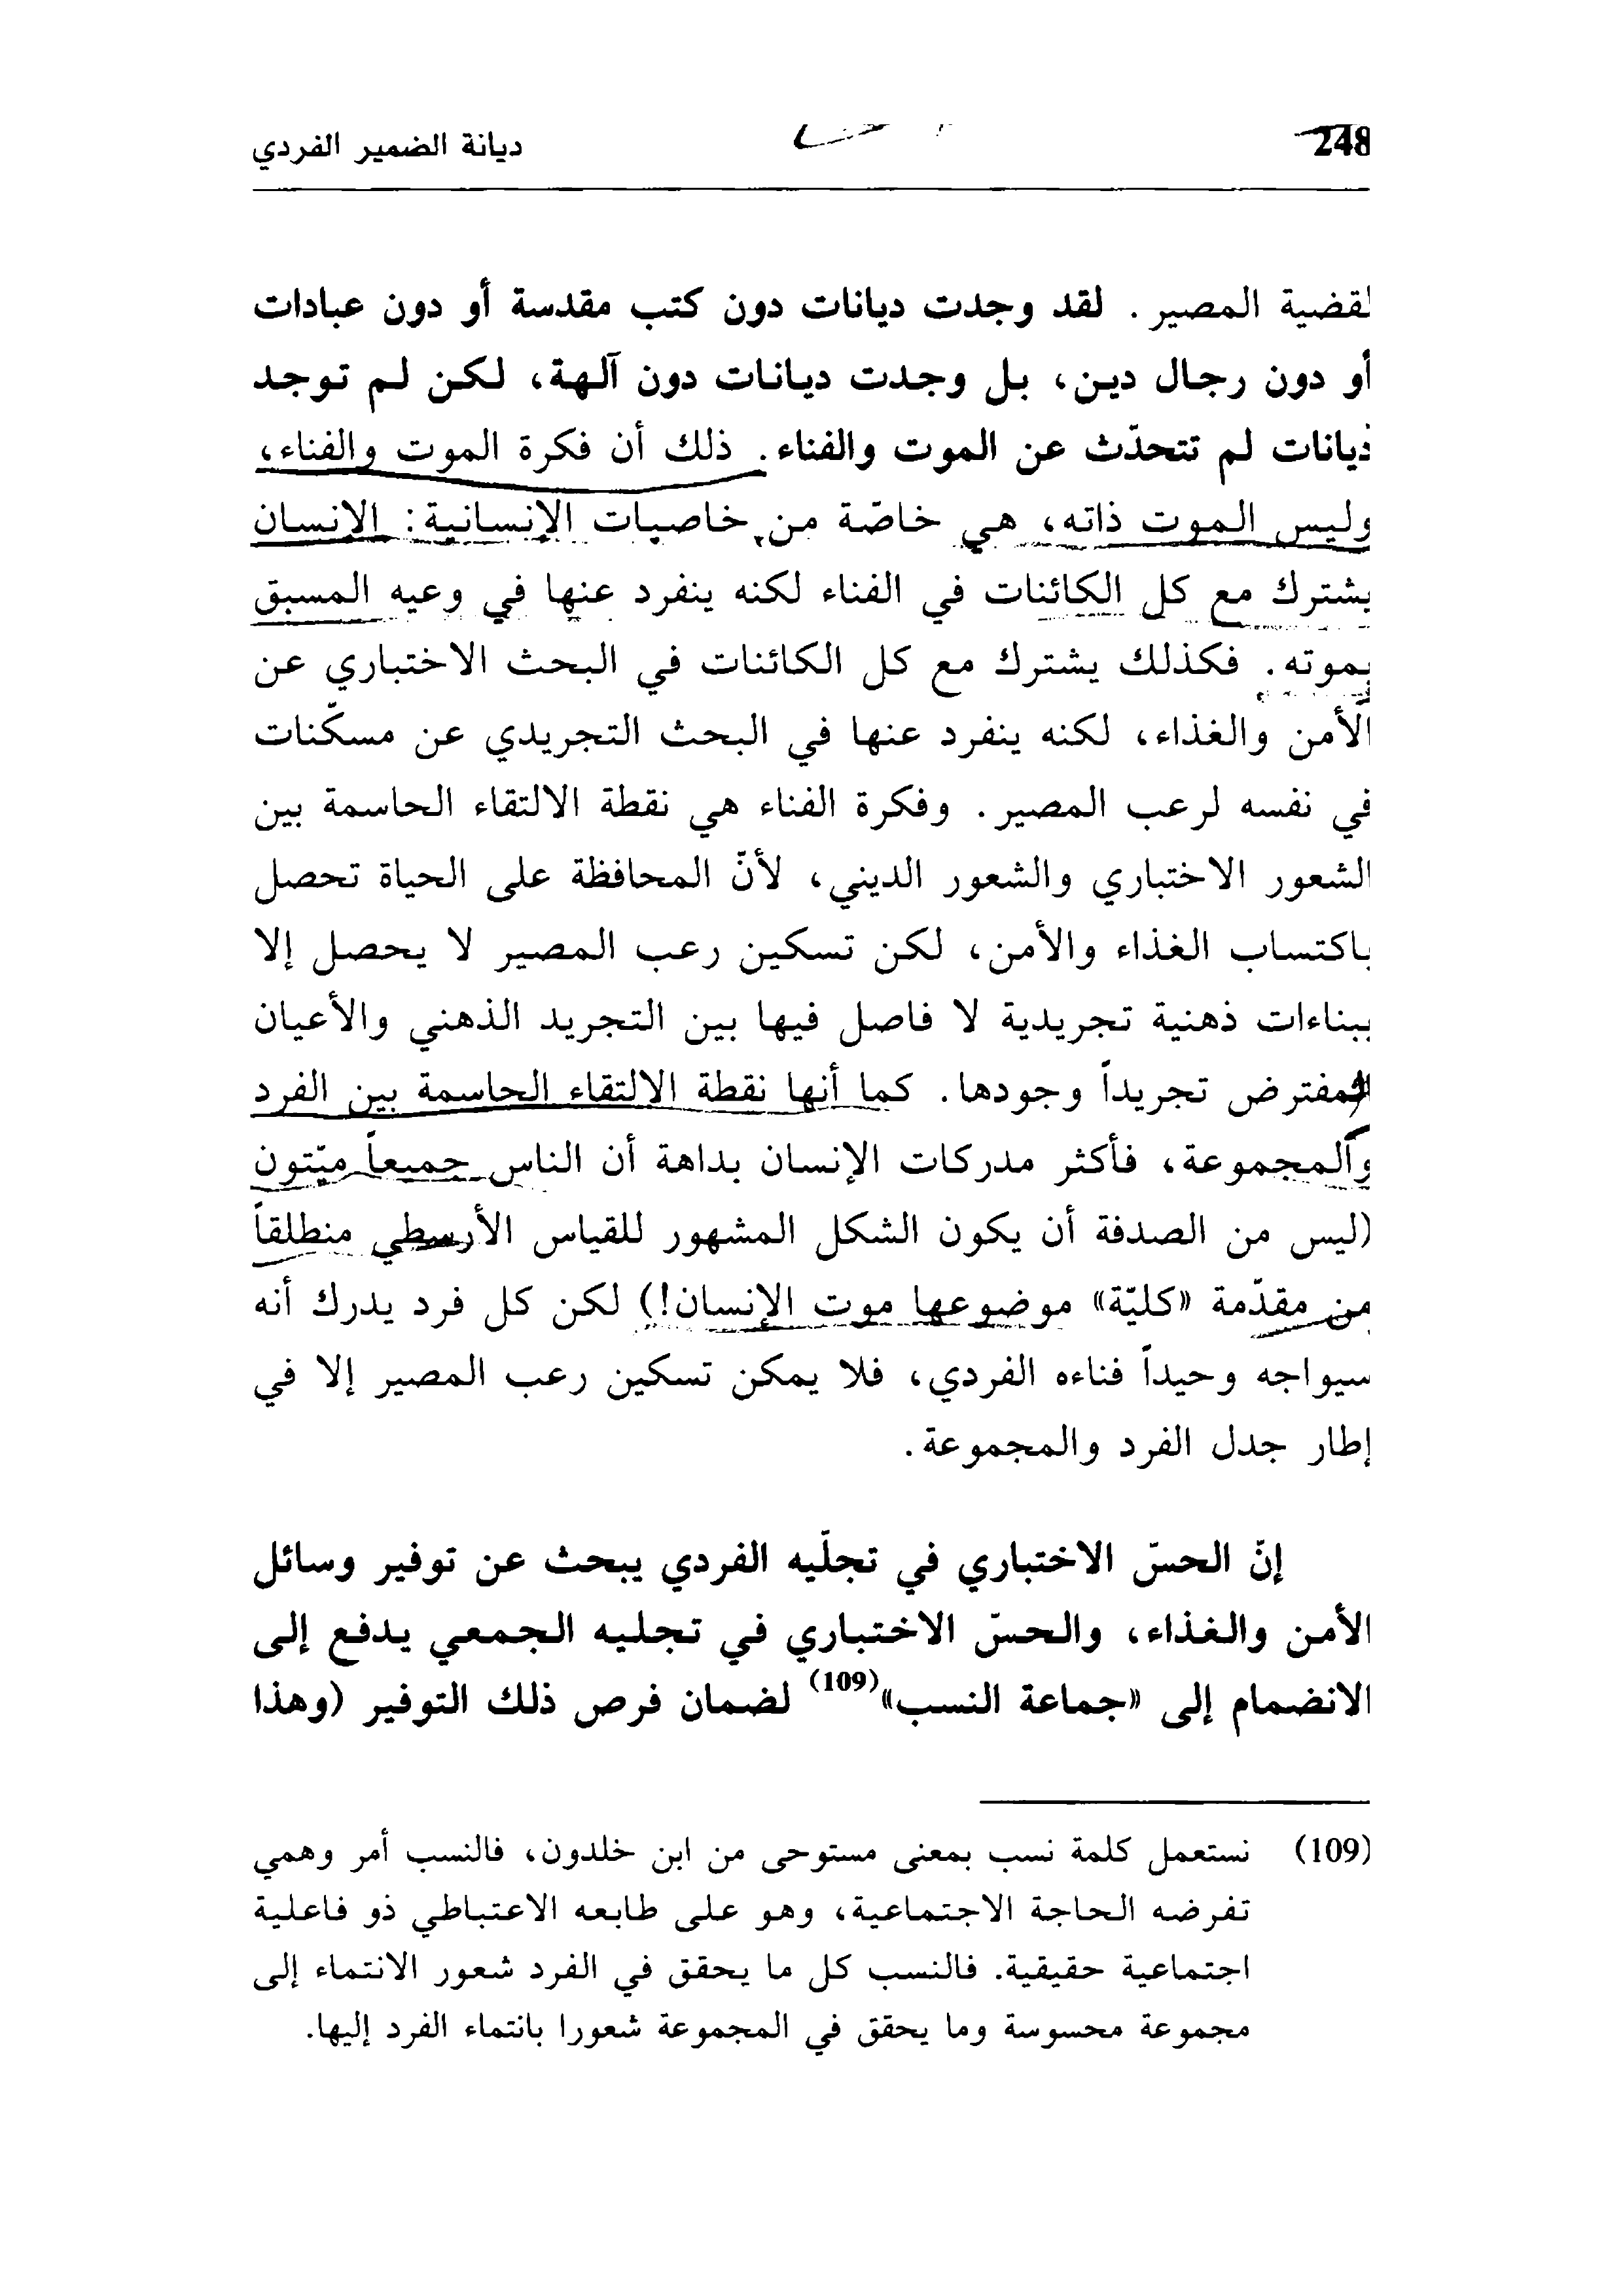 248
ديانة الضمير الفردي
لقضية المصير. لقد وجدت ديانات دون كتب مقدسة أو دون عبادات
أو دون رجال دين، بل وجدت ديانات دون آلهة، لكن لم توجد
ديانات لم تتحدّث عن الموت والفناء. ذلك أن فكرة الموت والفناء،
وليس الموت ذاته، هي خاصّة من خاصيات الإنسانية: الإنسان
يشترك مع كل الكائنات في الفناء لكنه ينفرد عنها في وعيه المسبق
بموته. فكذلك يشترك مع كل الكائنات في البحث الاختباري عن
الأمن والغذاء، لكنه ينفرد عنها في البحث التجريدي عن مسكّنات
في نفسه لرعب المصير. وفكرة الفناء هي نقطة الالتقاء الحاسمة بين
الشعور الاختباري والشعور الديني، لأنّ المحافظة على الحياة تحصل
باكتساب الغذاء والأمن، لكن تسكين رعب المصير لا يحصل إلا
ببناءات ذهنية تجريدية لا فاصل فيها بين التجريد الذهني والأعيان
المفترض تجريداً وجودها. كما أنها نقطة الالتقاء الحاسمة بين الفرد
والمجموعة، فأكثر مدركات الإنسان بداهة أن الناس جميعاً ميّتون
(ليس من الصدفة أن يكون الشكل المشهور للقياس الأرسطي منطلقاً
من مقدّمة «كليّة» موضوعها موت الإنسان!) لكن كل فرد يدرك أنه
سيواجه وحيداً فناءه الفردي، فلا يمكن تسكين رعب المصير إلا في
إطار جدل الفرد والمجموعة.
إنّ الحسّ الاختباري في تجلّيه الفردي يبحث عن توفير وسائل
الأمن والغذاء، والحسّ الاختباري في تجليه الجمعي يدفع إلى
الانضمام إلى «جماعة النسب»(109) لضمان فرص ذلك التوفير (وهذا
(109) نستعمل كلمة نسب بمعنى مستوحى من ابن خلدون، فالنسب أمر وهمي
تفرضه الحاجة الاجتماعية، وهو على طابعه الاعتباطي ذو فاعلية
اجتماعية حقيقية. فالنسب كل ما يحقق في الفرد شعور الانتماء إلى
مجموعة محسوسة وما يحقق في المجموعة شعورا بانتماء الفرد إليها.